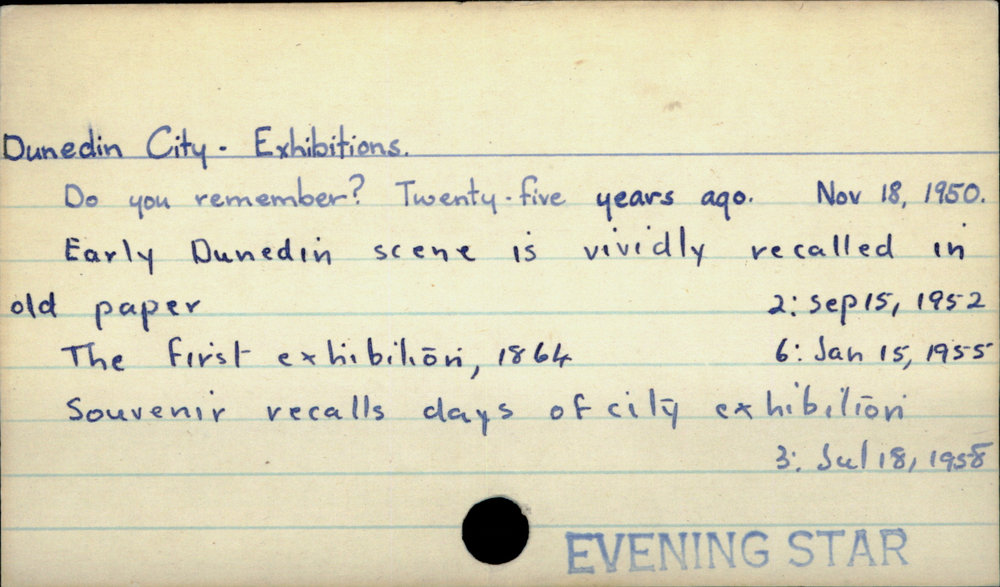 Dunedin City - Exhibitions.
Do you remember? Twenty-five years ago. Nov 18, 1950.
Early Dunedin scene is vividly recalled in
old paper 2: Sep 15, 1952
The first exhibition, 1864 6: Jan 15, 1955
Souvenir recalls days of city exhibition
3: Jul 18, 1958
EVENING STAR